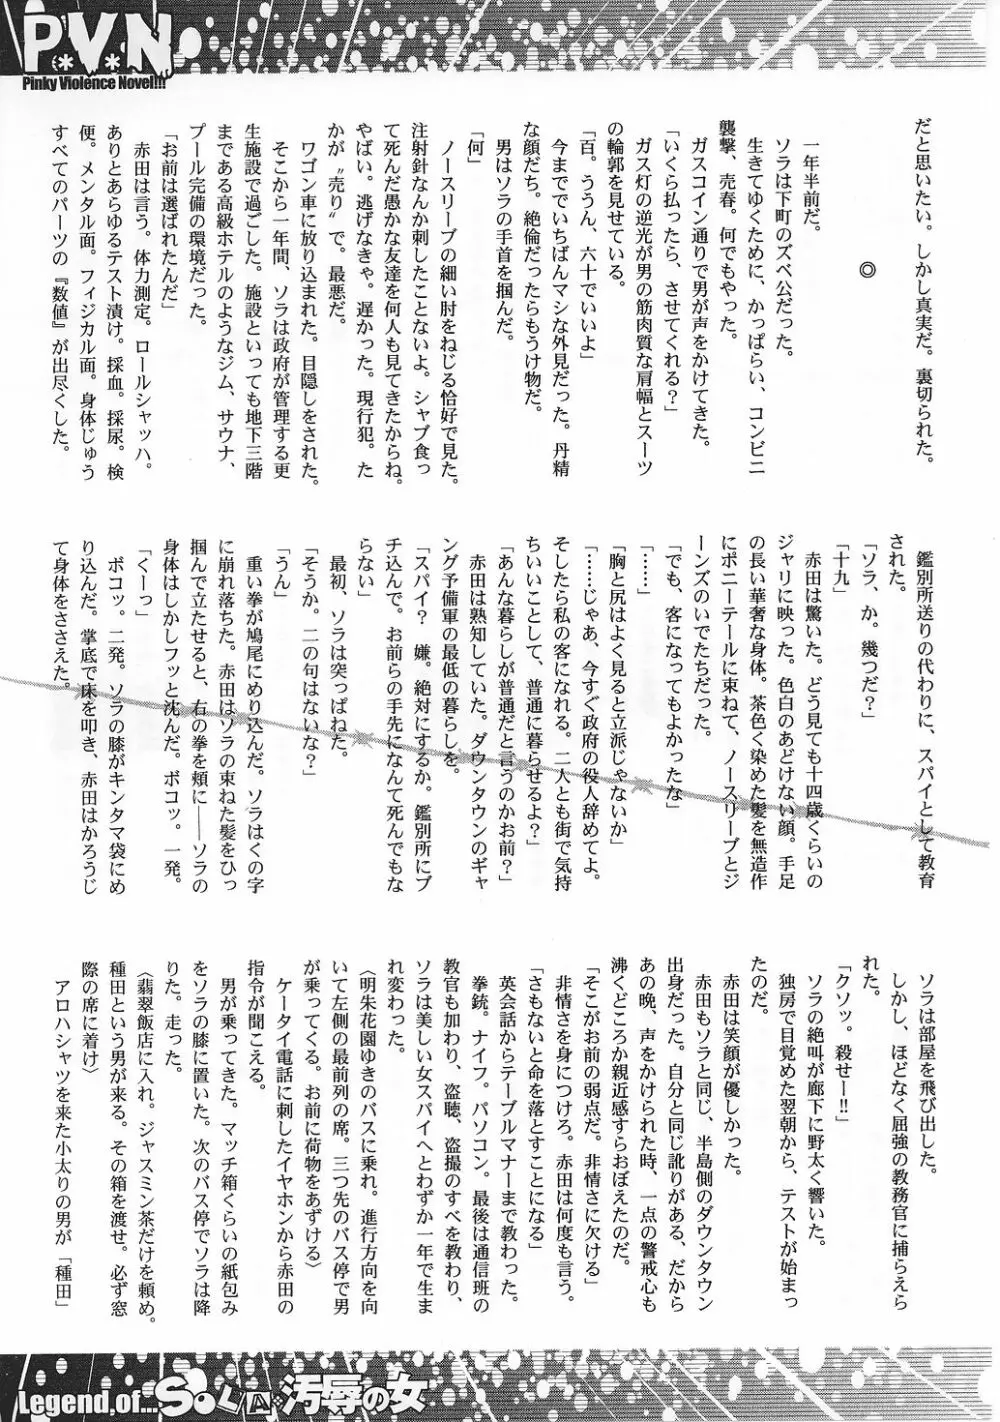 P.V.N
Pinky Violence Novel!!!
だと思いたい。しかし真実だ。裏切られた。
◎
一年半前だ。
ソラは下町のズベ公だった。
生きてゆくために、かっぱらい、コンビニ
襲撃、売春。何でもやった。
ガスコイン通りで男が声をかけてきた。
「いくら払ったら、させてくれる?」
ガス灯の逆光が男の筋肉質な肩幅とスーツ
の輪郭を見せている。
「百。ううん、六十でいいよ」
今まででいちばんマシな外見だった。丹精
な顔だち。絶倫だったらもうけ物だ。
男はソラの手首を掴んだ。
「何」
ノースリーブの細い肘をねじる恰好で見た。
注射針なんか刺したことないよ。シャブ食っ
て死んだ愚かな友達を何人も見てきたからね。
やばい。逃げなきゃ。遅かった。現行犯。た
かが〝売り〟で。最悪だ。
ワゴン車に放り込まれた。目隠しをされた。
そこから一年間、ソラは政府が管理する更
生施設で過ごした。施設といっても地下三階
まである高級ホテルのようなジム、サウナ、
プール完備の環境だった。
「お前は選ばれたんだ」
赤田は言う。体力測定。ロールシャッハ。
ありとあらゆるテスト漬け。採血。採尿。検
便。メンタル面。フィジカル面。身体じゅう
すべてのパーツの『数値』が出尽くした。
鑑別所送りの代わりに、スパイとして教育
された。
「ソラ、か。幾つだ?」
「十九」
赤田は驚いた。どう見ても十四歳くらいの
ジャリに映った。色白のあどけない顔。手足
の長い華奢な身体。茶色く染めた髪を無造作
にポニーテールに束ねて、ノースリーブとジ
ーンズのいでたちだった。
「でも、客になってもよかったな」
「……」
「胸と尻はよく見ると立派じゃないか」
「……じゃあ、今すぐ政府の役人辞めてよ。
そしたら私の客になれる。二人とも街で気持
ちいいことして、普通に暮らせるよ?」
「あんな暮らしが普通だと言うのかお前?」
赤田は熟知していた。ダウンタウンのギャ
ング予備軍の最低の暮らしを。
「スパイ? 嫌。絶対にするか。鑑別所にブ
チ込んで。お前らの手先になんて死んでもな
らない」
最初、ソラは突っぱねた。
「そうか。二の句はないな?」
「うん」
重い拳が鳩尾にめり込んだ。ソラはくの字
に崩れ落ちた。赤田はソラの束ねた髪をひっ
掴んで立たせると、右の拳を頬に――ソラの
身体はしかしフッと沈んだ。ボコッ。一発。
「くーっ」
ボコッ。二発。ソラの膝がキンタマ袋にめ
り込んだ。掌底で床を叩き、赤田はかろうじ
て身体をささえた。
ソラは部屋を飛び出した。
しかし、ほどなく屈強の教務官に捕らえら
れた。
「クソッ。殺せー!!」
ソラの絶叫が廊下に野太く響いた。
独房で目覚めた翌朝から、テストが始まっ
たのだ。
赤田は笑顔が優しかった。
赤田もソラと同じ、半島側のダウンタウン
出身だった。自分と同じ訛りがある、だから
あの晩、声をかけられた時、一点の警戒心も
沸くどころか親近感すらおぼえたのだ。
「そこがお前の弱点だ。非情さに欠ける」
非情さを身につけろ。赤田は何度も言う。
「さもないと命を落とすことになる」
英会話からテーブルマナーまで教わった。
拳銃。ナイフ。パソコン。最後は通信班の
教官も加わり、盗聴、盗撮のすべを教わり、
ソラは美しい女スパイへとわずか一年で生ま
れ変わった。
〈明朱花園ゆきのバスに乗れ。進行方向を向
いて左側の最前列の席。三つ先のバス停で男
が乗ってくる。お前に荷物をあずける〉
ケータイ電話に刺したイヤホンから赤田の
指令が聞こえる。
男が乗ってきた。マッチ箱くらいの紙包み
をソラの膝に置いた。次のバス停でソラは降
りた。走った。
〈翡翠飯店に入れ。ジャスミン茶だけを頼め。
種田という男が来る。その箱を渡せ。必ず窓
際の席に着け〉
アロハシャツを来た小太りの男が「種田」
Legend of... SOLA 汚辱の女